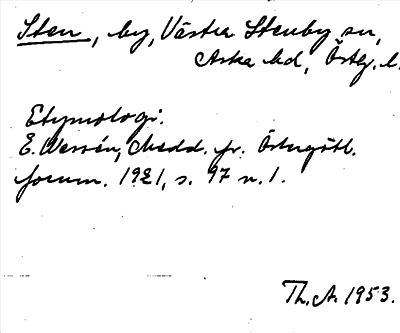 Sten, by, Västra Stenby sn,
Aska hd, Östg. l.
Etymologi:
E. Wessén, Medd. fr. Östergötl.
fornm. 1921, s. 97 n. 1.
Th. A. 1953.